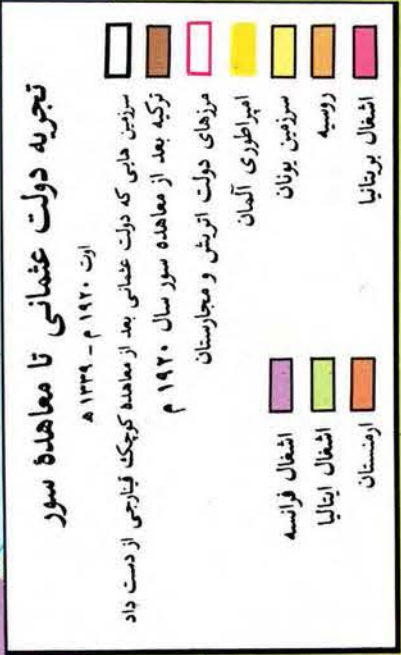 تجربه دولت عثمانی تا معاهده سور
اوت ۱۹۲۰ م - ۱۳۳۹ ه
سرزمین هایی که دولت عثمانی بعد از معاهده کوچک قینارجی از دست داد
ترکیه بعد از معاهده سور سال ۱۹۲۰ م
مرزهای دولت اتریش و مجارستان
امپراطوری آلمان
سرزمین یونان
روسیه
اشغال بریتانیا
اشغال فرانسه
اشغال ایتالیا
ارمنستان